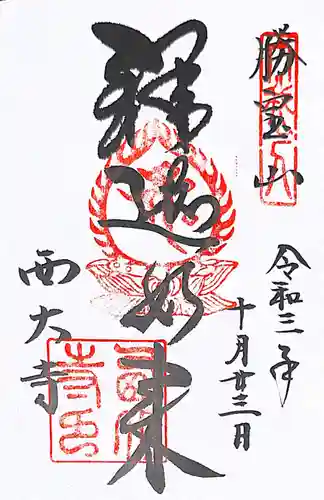 勝宝山
令和三年
十月廿三日
釋迦如来
西大寺